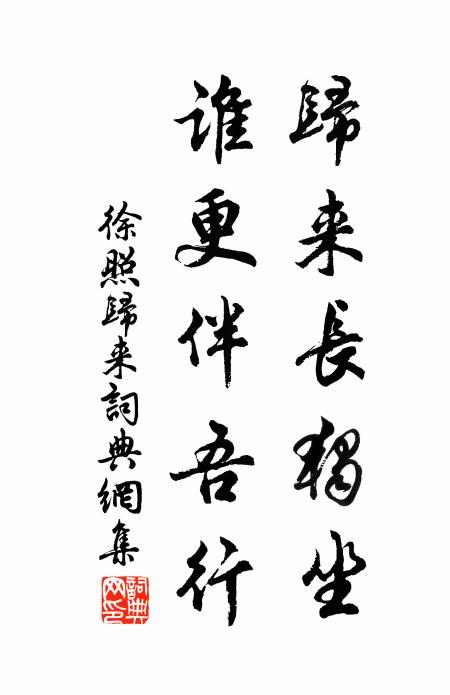 歸来長獨坐
誰更伴吾行
徐照歸来詞典網集
詞典网印